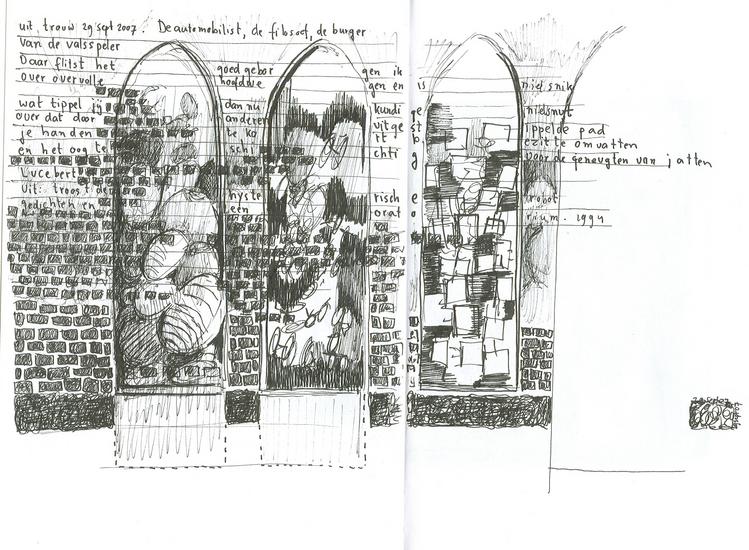 uit trouw 29 sept 2007. De automobilist, de filosoof, de burger
Van de valsspeler
Daar flitst het goed gebor gen ik is niets nik
over overvolle hoofd die gen en
wat tippel ij dan nu kundi ge nietsnut
over dat door anderen uitge st ippelde pad
je handen te ko rt b ezit te omvatten
en het oog te schi chti g voor de geneugten van jatten
Lucebert
uit: troost de hyste risch e robot
gedichten en een orat o rium. 1994